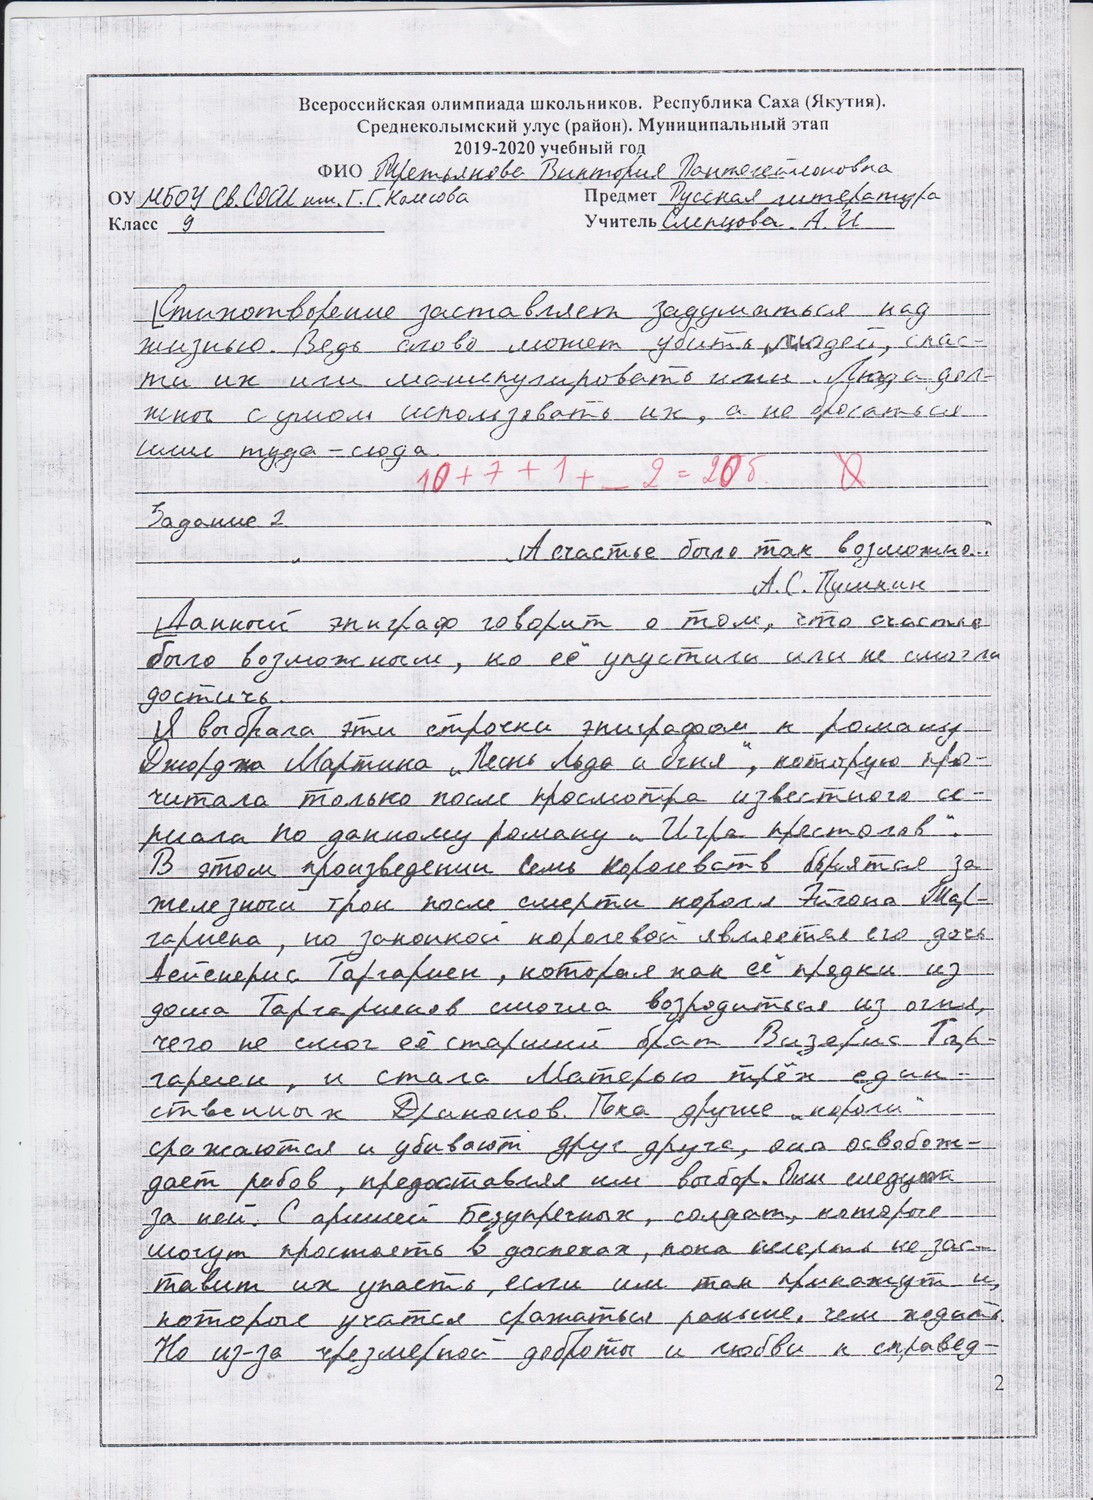 Всероссийская олимпиада школьников. Республика Саха (Якутия).
Среднеколымский улус (район). Муниципальный этап
2019-2020 учебный год
ФИО Третьянова Виктория Пантелеймоновна
ОУ МБОУ Св.СОШ им. Г.Г. Колесова Предмет Русская литература
Класс 9 Учитель Слепцова. А. И
Стихотворение заставляет задуматься над
жизнью. Ведь слово может убить людей, спас-
ти их или манипулировать ими. Люди дол-
жны с умом использовать их, а не бросаться
ими туда-сюда.
10 + 7 + 1 + _ 2 = 20б.
Задание 2
„А счастье было так возможно..."
А. С. Пушкин
Данный эпиграф говорит о том, что счастье
было возможным, но её упустили или не смогли
достичь.
Я выбрала эти строчки эпиграфом к роману
Джорджа Мартина „Песнь льда и огня", которую про-
читала только после просмотра известного се-
риала по данному роману „Игра престолов".
В этом произведении семь королевств борятся за
железный трон после смерти короля Эйгона Тар-
гариена, но законной королевой является его дочь
Дейенерис Таргариен, которая как её предки из
дома Таргариенов смогла возродиться из огня,
чего не смог её старший брат Визерис Тар-
гариен, и стала Матерью трёх един-
ственных Драконов. Пока другие „короли"
сражаются и убивают друг друга, она освобож-
дает рабов, предоставляя им выбор. Они следуют
за ней. С армией Безупречных, солдат, которые
могут простоять в доспехах, пока смерть не зас-
тавит их упасть, если им так прикажут и,
которые учатся сражаться раньше, чем ходить.
Но из-за чрезмерной доброты и любви к справед-
2